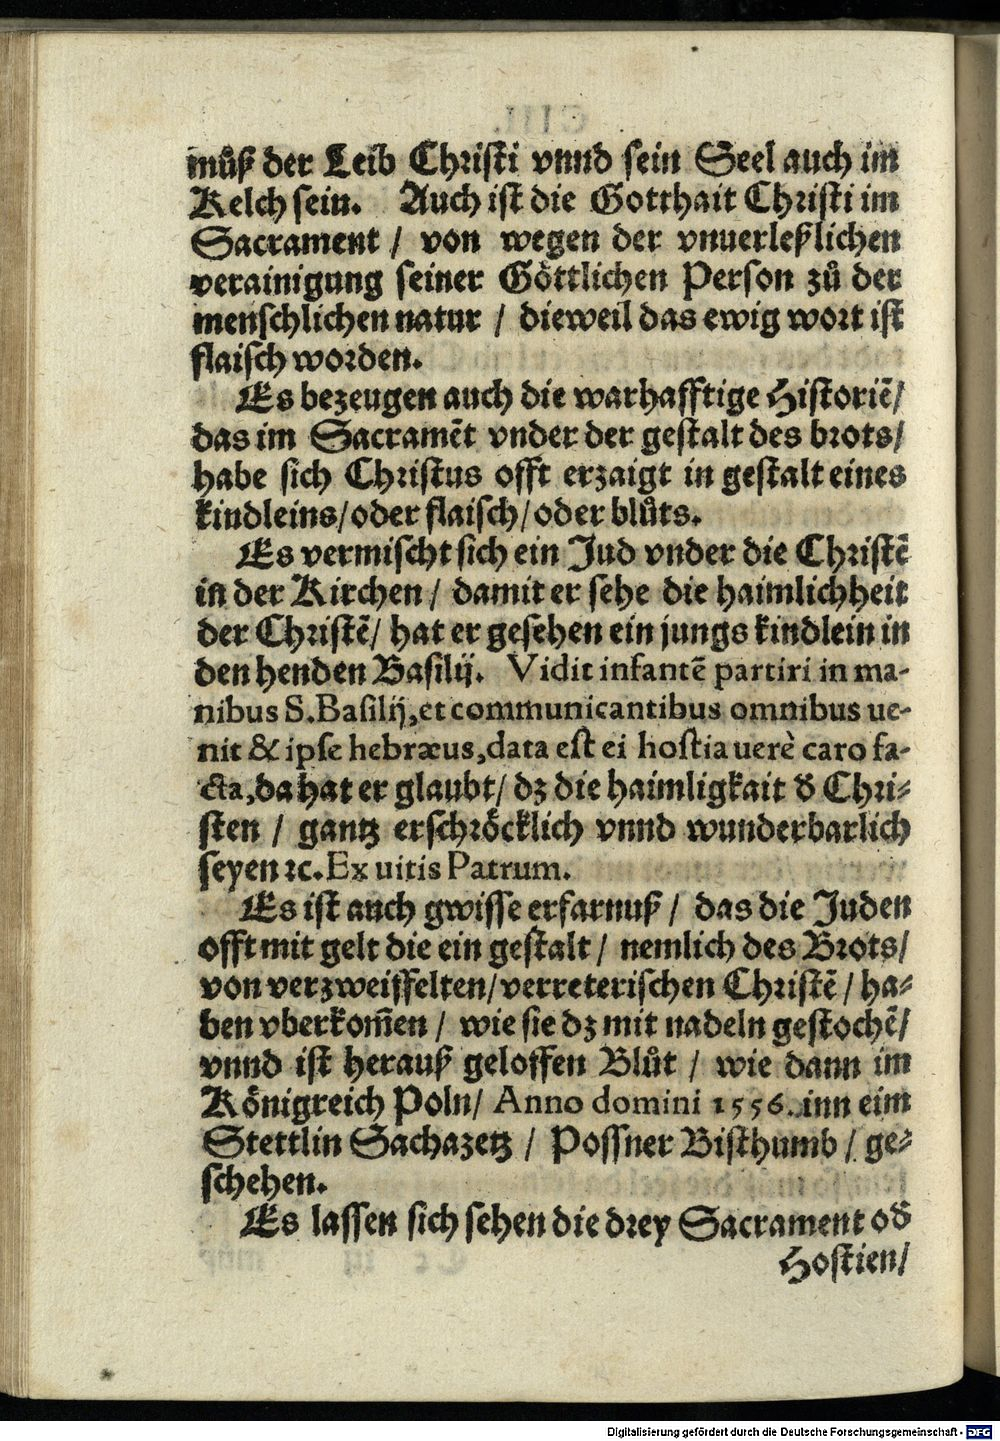 muͦß der Leib Christi vnnd sein Seel auch im
Kelch sein. Auch ist die Gotthait Christi im
Sacrament / von wegen der vnuerleßlichen
verainigung seiner Göttlichen Person zuͦ der
menschlichen natur / dieweil das ewig wort ist
flaisch worden.
Es bezeugen auch die warhafftige Historiẽ/
das im Sacramẽt vnder der gestalt des brots/
habe sich Christus offt erzaigt in gestalt eines
kindleins/oder flaisch/oder bluͦts.
Es vermischt sich ein Jud vnder die Christẽ
in der Kirchen / damit er sehe die haimlichheit
der Christẽ/ hat er gesehen ein jungs kindlein in
den henden Basilij. Vidit infantẽ partiri in ma-
nibus S. Basilij, et communicantibus omnibus ue-
nit & ipse hebræus, data est ei hostia uerè caro fa-
cta, da hat er glaubt/ dz die haimligkait d̕ Chri-
sten / gantz erschröcklich vnnd wunderbarlich
seyen ꝛc. Ex uitis Patrum.
Es ist auch gwisse erfarnuß / das die Juden
offt mit gelt die ein gestalt / nemlich des Brots/
von verzweiffelten/verreterischen Christẽ / ha-
ben vberkom̃en / wie sie dz mit nadeln gestochẽ/
vnnd ist herauß geloffen Bluͦt / wie dann im
Königreich Poln/ Anno domini 1556. inn eim
Stettlin Sachazetz / Possner Bisthumb / ge-
schehen.
Es lassen sich sehen die drey Sacrament od̕
Hostien/
Digitalisierung gefördert durch die Deutsche Forschungsgemeinschaft - DFG